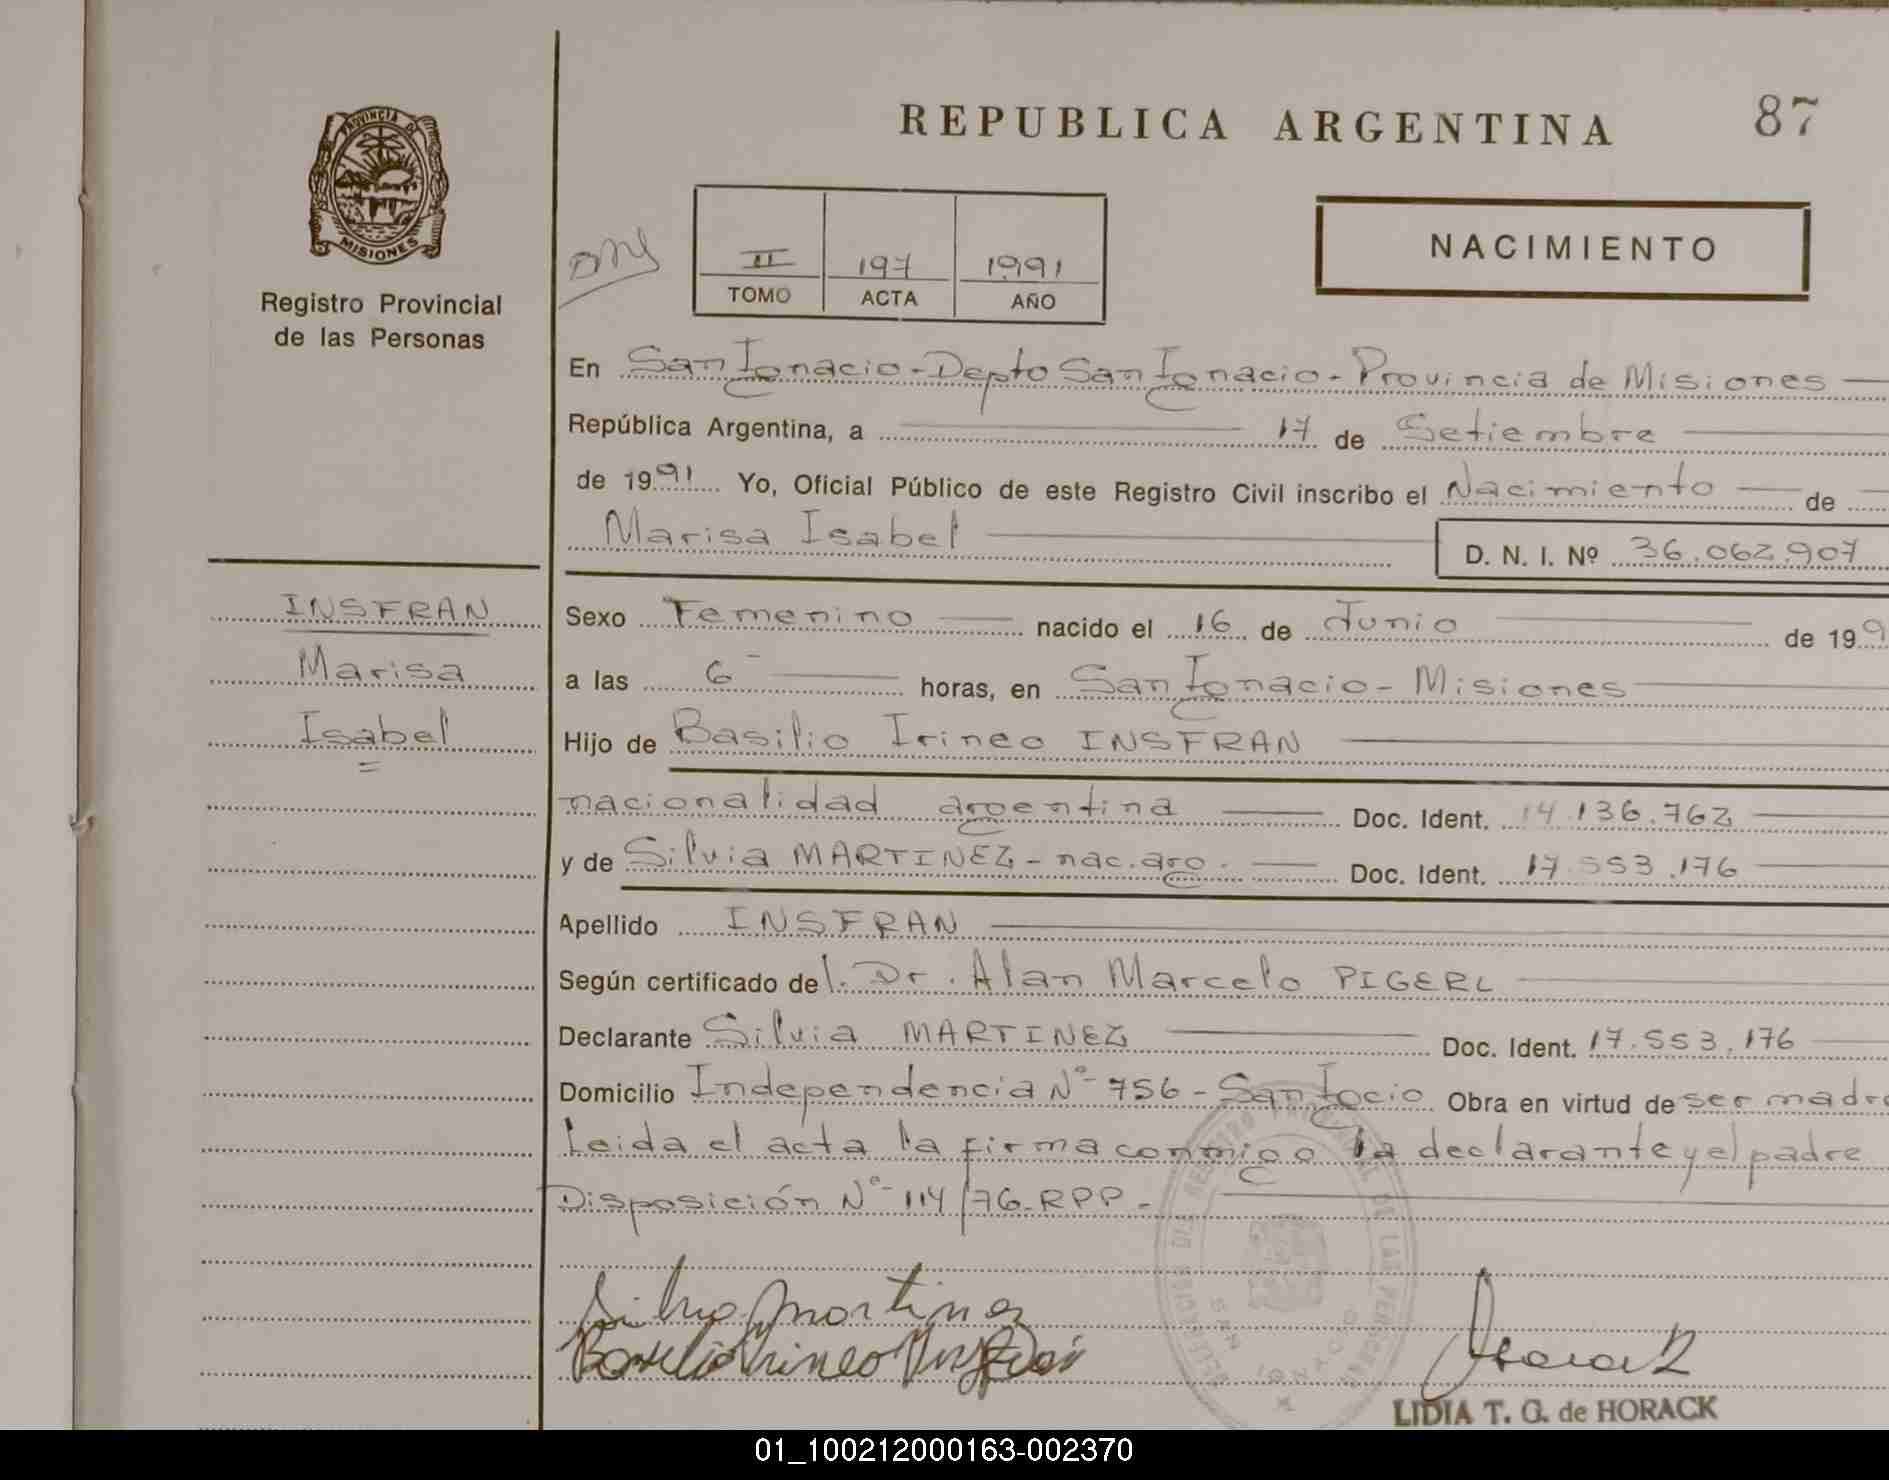 REPUBLICA ARGENTINA
87
PROVINCIA DE
MISIONES
Registro Provincial
de las Personas
II 197 1991
TOMO ACTA AÑO
NACIMIENTO
En San Ignacio - Depto San Ignacio - Provincia de Misiones
República Argentina, a 17 de Setiembre
de 1991 Yo, Oficial Público de este Registro Civil inscribo el Nacimiento de
Marisa Isabel D. N. I. Nº 36.062.907
INSFRAN
Marisa
Isabel
Sexo Femenino nacido el 16 de Junio de 199
a las 6 horas, en San Ignacio - Misiones
Hijo de Basilio Irineo INSFRAN
nacionalidad argentina Doc. Ident. 14.136.762
y de Silvia MARTINEZ - nac. arg. Doc. Ident. 17.553.176
Apellido INSFRAN
Según certificado del. Dr. Alan Marcelo PIGERL
Declarante Silvia MARTINEZ Doc. Ident. 17.553.176
Domicilio Independencia Nº 756 - San Igcio Obra en virtud de ser madre
Leida el acta la firma conmigo la declarante y el padre
Disposición Nº 114/76-RPP.-
Silvia Martinez
Basilio Irineo Insfran
Horack
LIDIA T. G. de HORACK
01_100212000163-002370